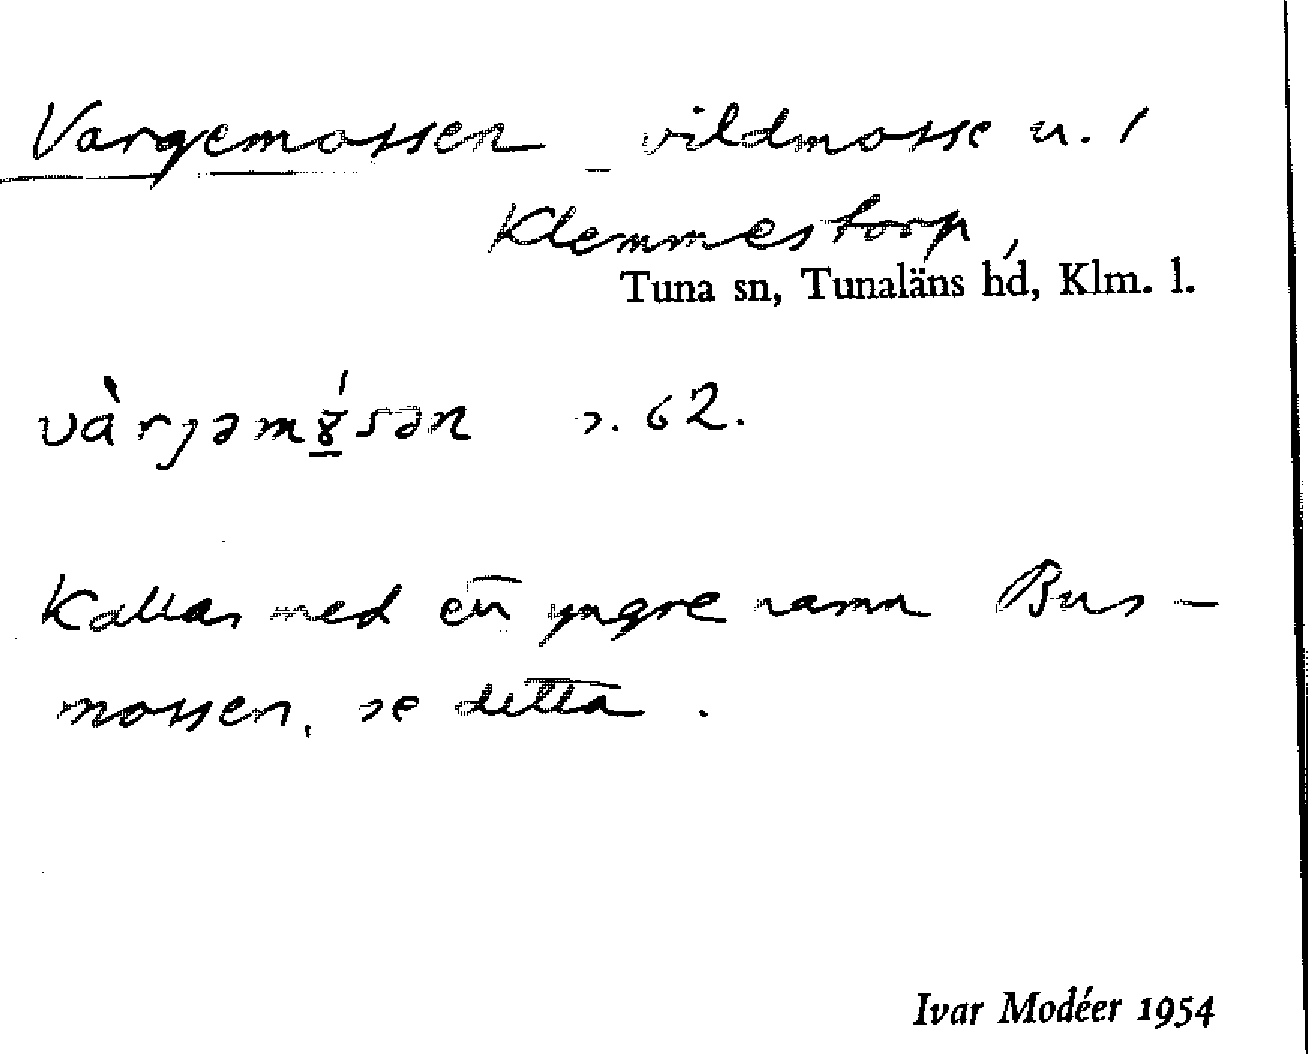 Vargemossen vildmosse u. /
Klemmestorp,
Tuna sn, Tunaläns hd, Klm. l.
vàrjəmɤ́sən s. 62.
Kallas med ett yngre namn Bus-
mossen, se detta.
Ivar Modéer 1954